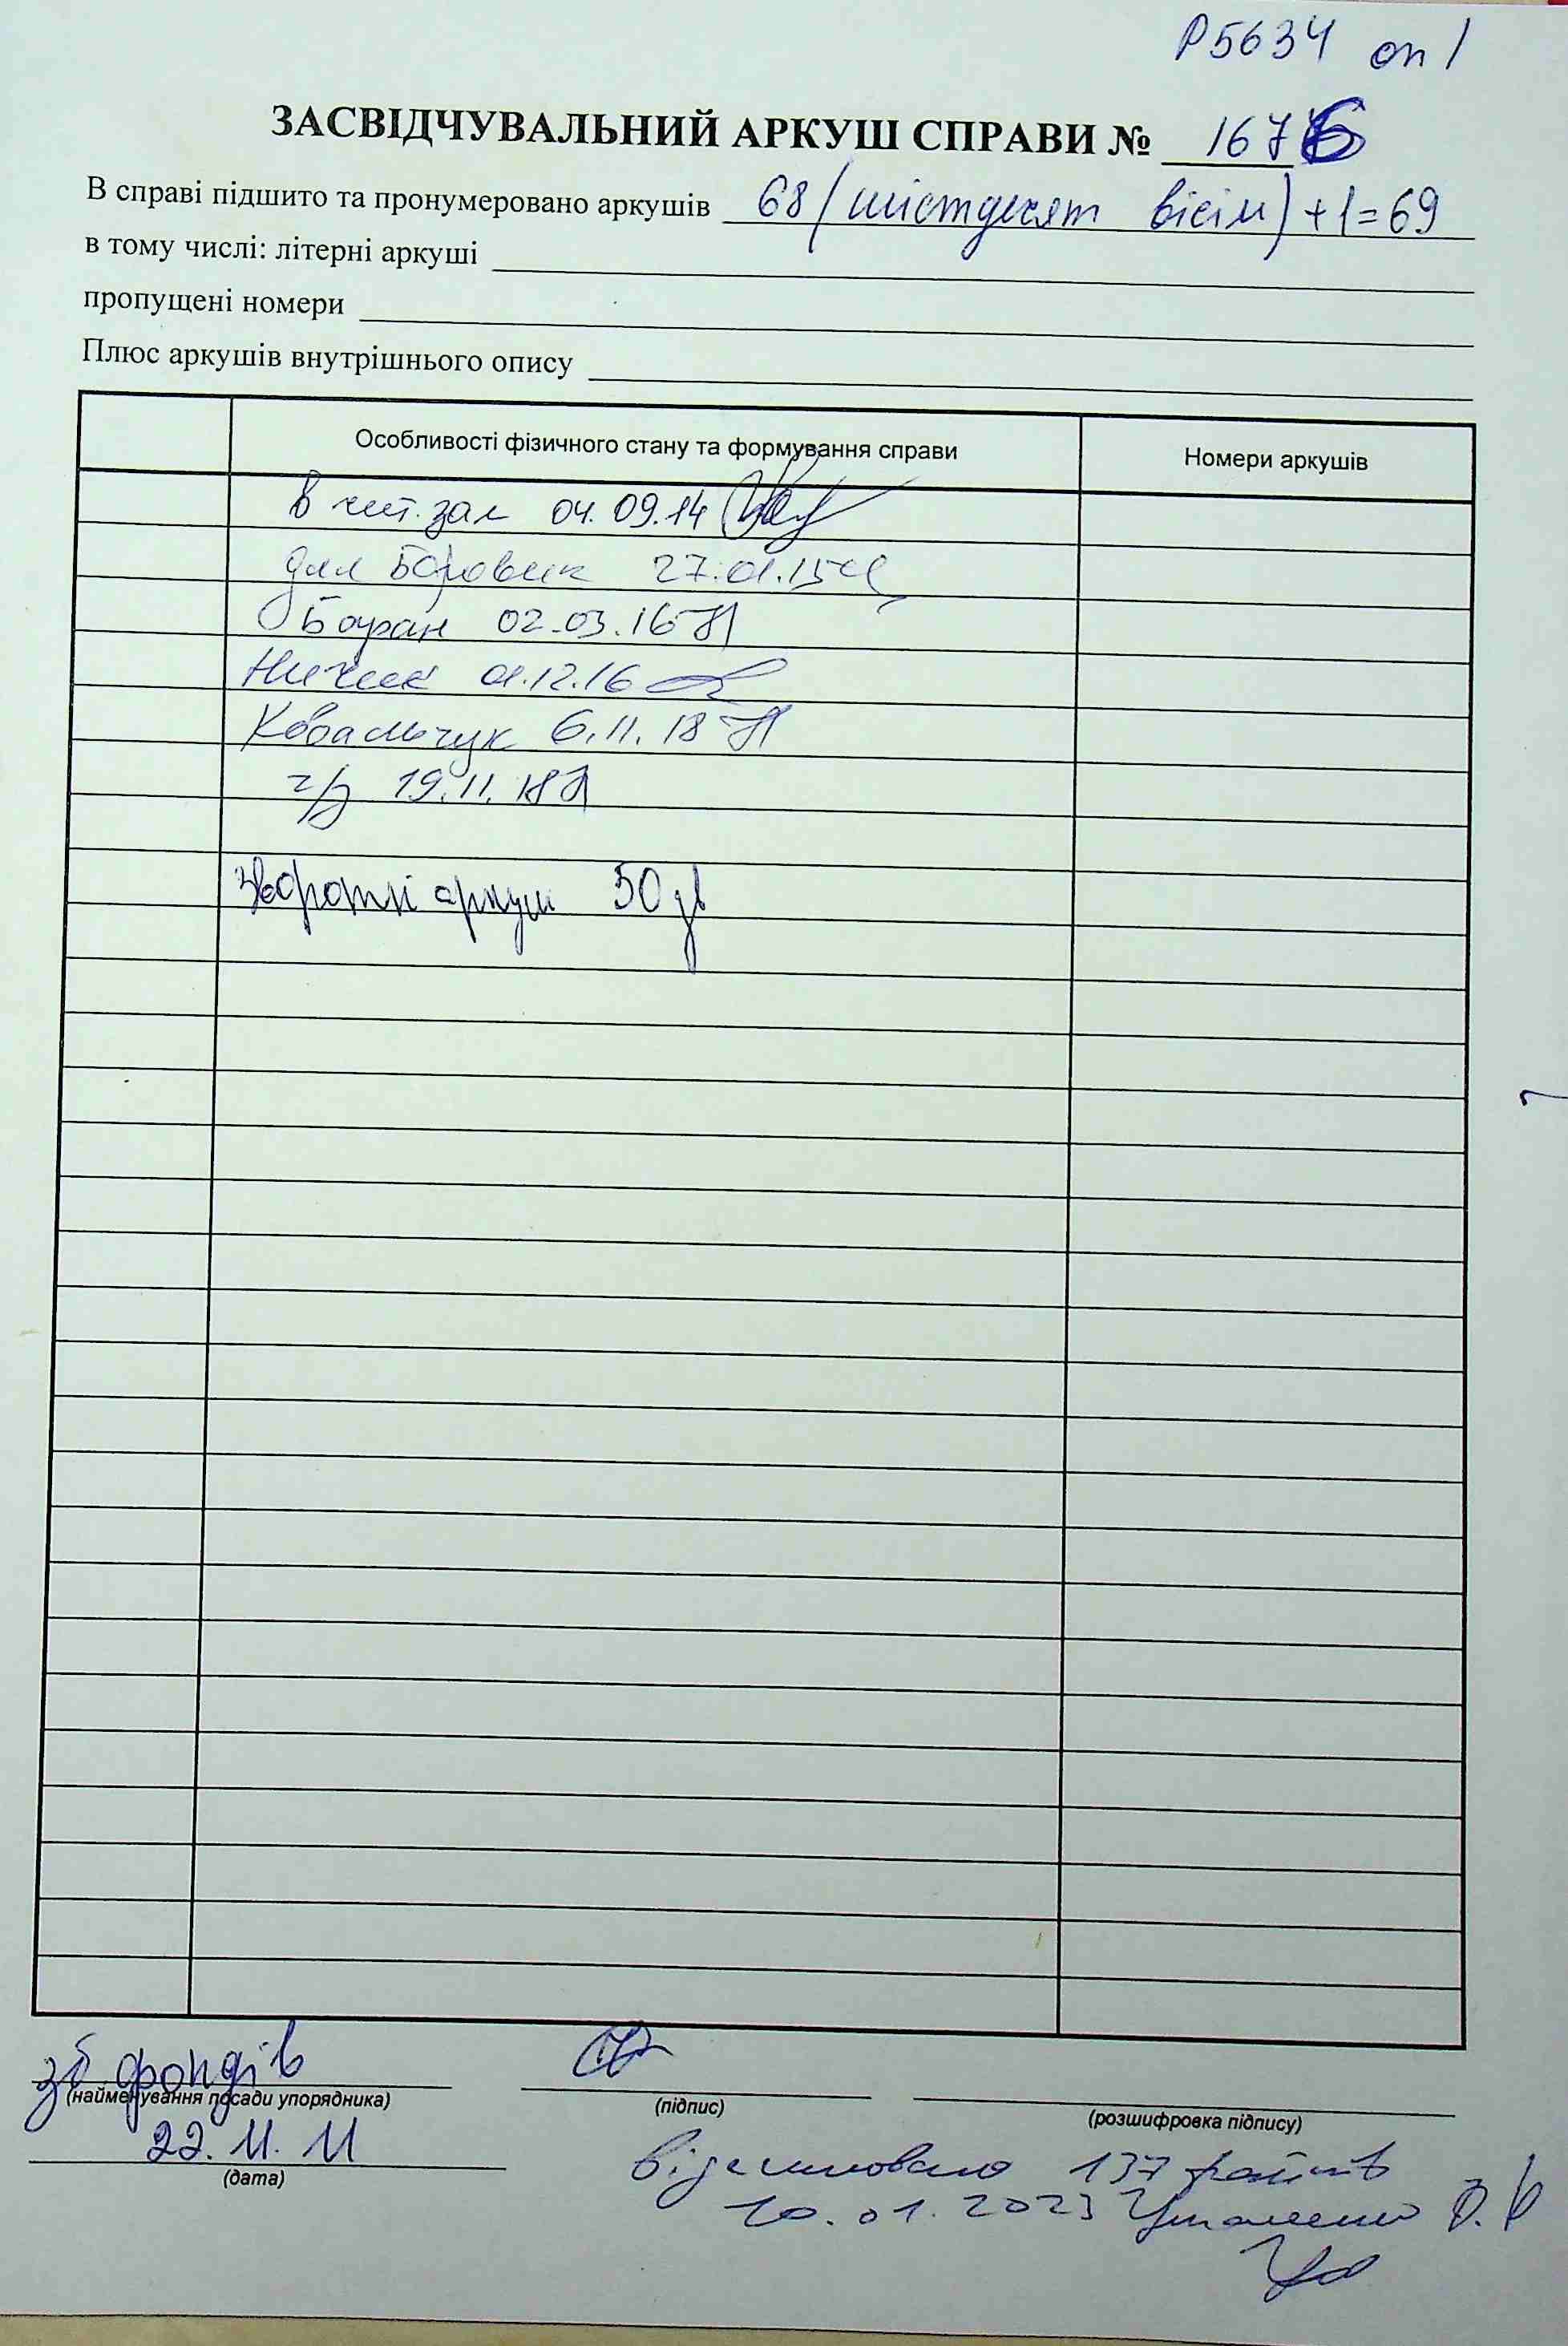 Р5634 оп 1
ЗАСВІДЧУВАЛЬНИЙ АРКУШ СПРАВИ № 1676
В справі підшито та пронумеровано аркушів 68 (шістдесят вісім) +1=69
в тому числі: літерні аркуші
пропущені номери
Плюс аркушів внутрішнього опису
Особливості фізичного стану та формування справи Номери аркушів
в чит. зал 04.09.14
для Боровик 27.01.15
Баран 02.03.16
01.12.16
Ковальчук 6.11.18
19.11.18
зворотні аркуші 50 зв
зб фондів
(найменування посади упорядника) (підпис) (розшифровка підпису)
22.11.11
(дата)
відскановано 137 файлів
10.01.2023